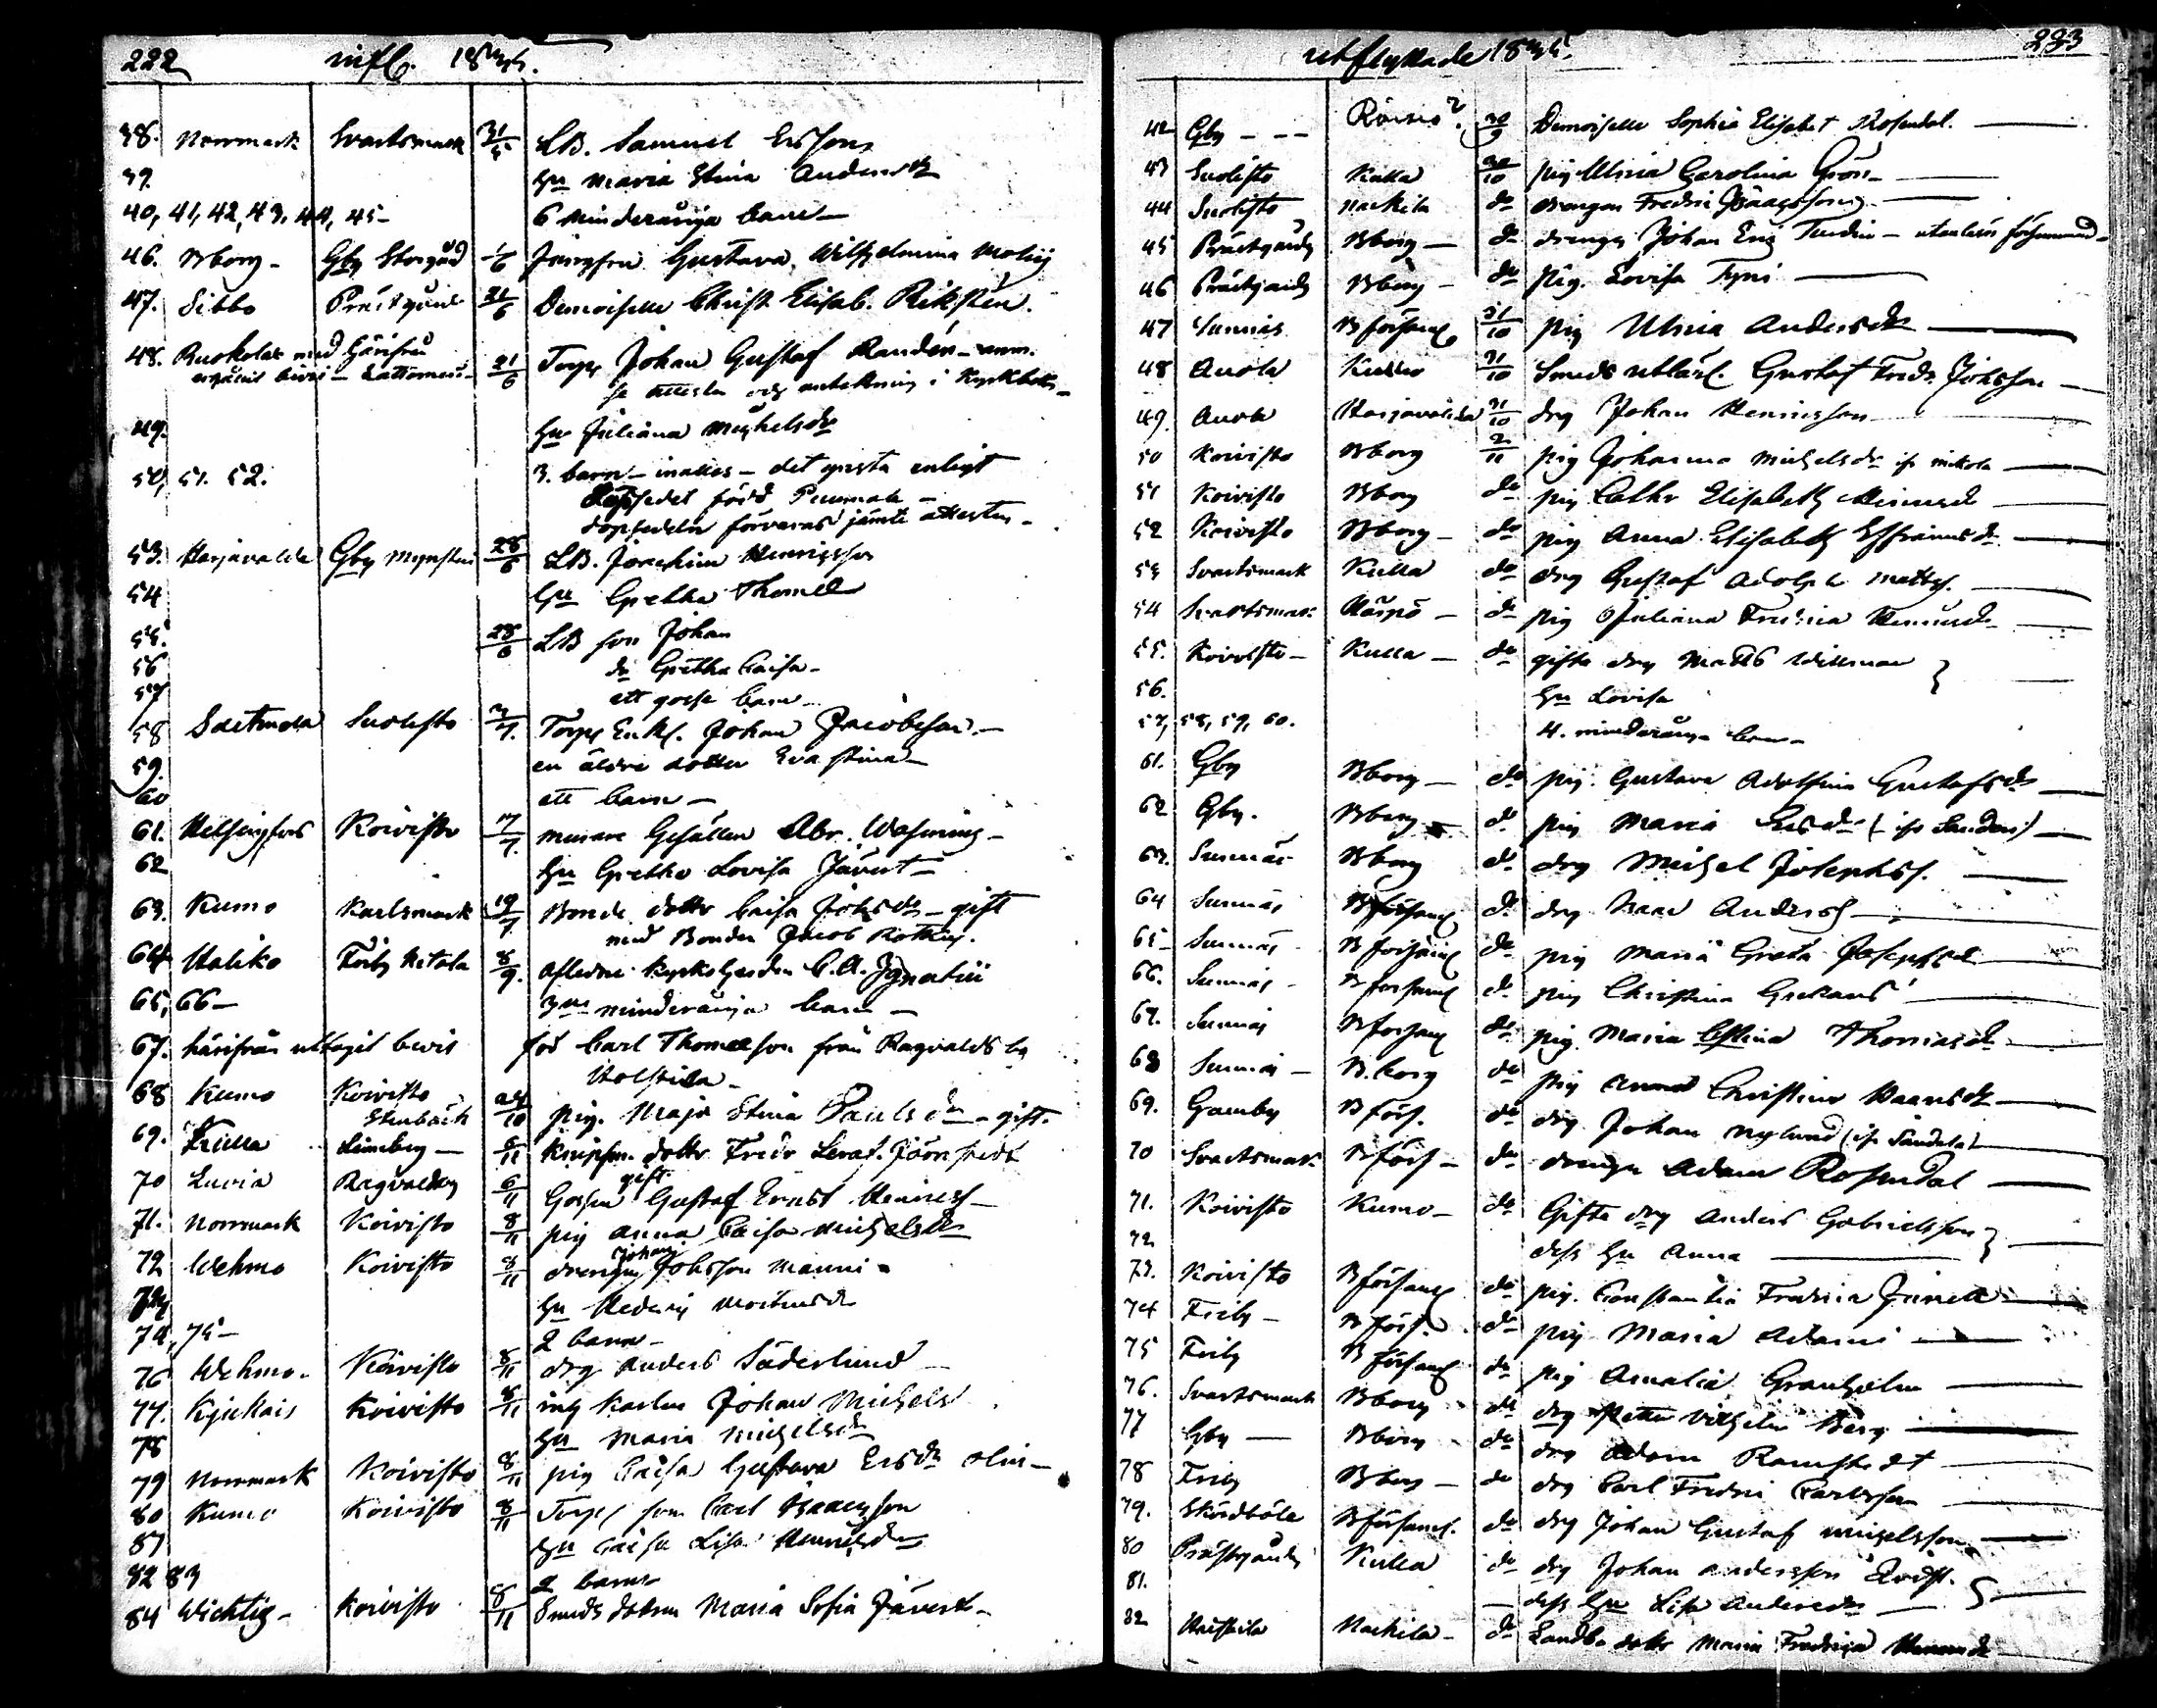 222 infl. 1835.
38. Norrmark Svartsmark 31/5 LB. Samuel Ersson
39. Hu Maria Stina Andersdr
40, 41, 42, 43, 44, 45- 6 minderåriga barn
46. Bborg - Gby Storgård 1/6 Jungfru Gustava Wilhelmina Molin
47. Sibbo Prästgård 21/6 Demoiselle Christ. Elisab. Riksten.
48. Ruokolax med härifrån 21/6 Torp. Johan Gustaf Randen - anm.
se attesten och anteckning i Kyrkbok
49. Hu Juliana Michelsdr
50, 51. 52. 3. barn - inalles - det yngsta enligt
Dopsedel född
dopsedeln förvaras jämte attesten -
53. Harjavalda Gby 28/6 LB. Joachim Henricsson
54 Hu Gretha Thomedr
55. 28/6 LB son Johan
56 dr Gretha Caisa -
57 ett gosse barn -
58 Sastmola Suolisto 3/7. Torp Enkl. Johan Jacobsson -
59. en äldre dotter Eva Stina -
60 ett barn -
61. Helsingfors Koivisto 17/7. murare Gesällen Abr. Wahming -
62 Hu Gretha Lovisa Jävert -
63. Kumo Karlsmark 19/7 Bonde dottr Caisa Johsdr - gift
med Bonden Jacob
64 Haliko Friby Ketola 8/9. Aflidne Kyrkoherden C. A. Ignatii
65, 66 - 3ne minderåriga barn -
67. härifrån uttagit bevis för Carl Thomasson från Ragvalds by
68 Kumo Koivisto 24/10 pig. Maja Stina Paulsdr - gift.
Stenbäck
69. Kulla Lineberg - 6/11 dottr Fredr
gift
70 Luvia Ragvaldsby 6/11 Gossen Gustaf Ernst Henricss -
71. Norrmark Koivisto 8/11 pig Anna Caisa Michelsdr
72 Wehmo Koivisto 8/11 drengen Johan Johsson Manni -
73 Hu Hedvig Mortensdr
74, 75 - 2 barn -
76 Wehmo - Koivisto 8/11 drg Anders Söderlund -
77. Kjukais Koivisto 8/11 ing Karlen Johan Michels
78 Hu Maria Michelsdr
79 Norrmark Koivisto 8/11 pig Caisa Gustava Ersdr
80 Kumo Koivisto 8/11 Torp son Carl Isaacsson
81 Hu Caisa Lisa Henricsdr
82 83 2 barn
84 Wichtis - Koivisto 8/11 Smeds dottren Maria Sofia Jävert -
utflyttade 1835. 223
42 Gby - - - Räisiö? 30/9 Demoiselle Sophia Elisabet Rosendal.
43 Suolisto Kulla 30/10 pig Ulrica Carolina Grön -
44 Suolisto Nackila do drengen Fredric Isaacsson
45 Prästgårds Bborg - do drengen Johan Eric
46 Prästgårds Bborg - do pig. Lovisa Fyri
47 Sunnäs B församl 31/10 pig Ulrica Andersdr
48 Anola Kulla 31/10 Smeds utlärl. Gustaf Fredr. Johsson
49. Anola Harjavalda 31/10 drg Johan Henricsson
50 Koivisto Bborg 2/11 pig Johanna Michelsdr
51 Koivisto Bborg do pig Cathr Elisabeth Henricsdr
52 Koivisto Bborg - do pig Anna Elisabeth Effraimsdr
53 Svartsmark Kulla do drg Gustaf Adolph Mattss.
54 Svartsmark - do pig Juliana Fredrica Henricsdr
55. Koivisto - Kulla - do gifte drg Matts Willman
56. Hu Lovisa
57, 58, 59, 60. 4. minderåriga barn -
61. Gby Bborg - do pig. Gustava Adolfina Gustafsdr
62 Gby. Bborg do pig Maria Ersdr
63. Sunnäs Bborg do drg Michel Josephss.
64 Sunnäs B församl do drg Isaac Anderss
65 - Sunnäs B församl do pig Maria Greta Josephsdr
66. Sunnäs - B församl do pig Christina
67. Sunnäs B församl do pig. Maria Thomasdr
68 Sunnäs - B.borg do pig Anna Christina Isaacsdr
69. Gamby B förs. do drg Johan Nylund
70 Svartsmark B förs - do drengen Adam Rosendal
71. Koivisto Kumo - do Gifte drg Anders Gabrielsson
72 dess Hu Anna
73. Koivisto B församl do pig. Constantia Fredrica
74 Friby - B förs. do pig Maria Adams
75 Friby B församl do pig Amalia Granholm
76. Svartsmark Bborg do drg Petter Vilhelm Berg
77 Gby - Bborg do drg Adam Ramstedt
78 Friby Bborg - do drg Carl Fredric Carlsson
79. Skördböle B församl. do drg Johan Gustaf Michelsson
80 Prästgårds Kulla do drg Johan Andersson
81. dess Hu Lisa Andersdr
82 Haistila Nackila - do Landbo dottr Maria Fredrica